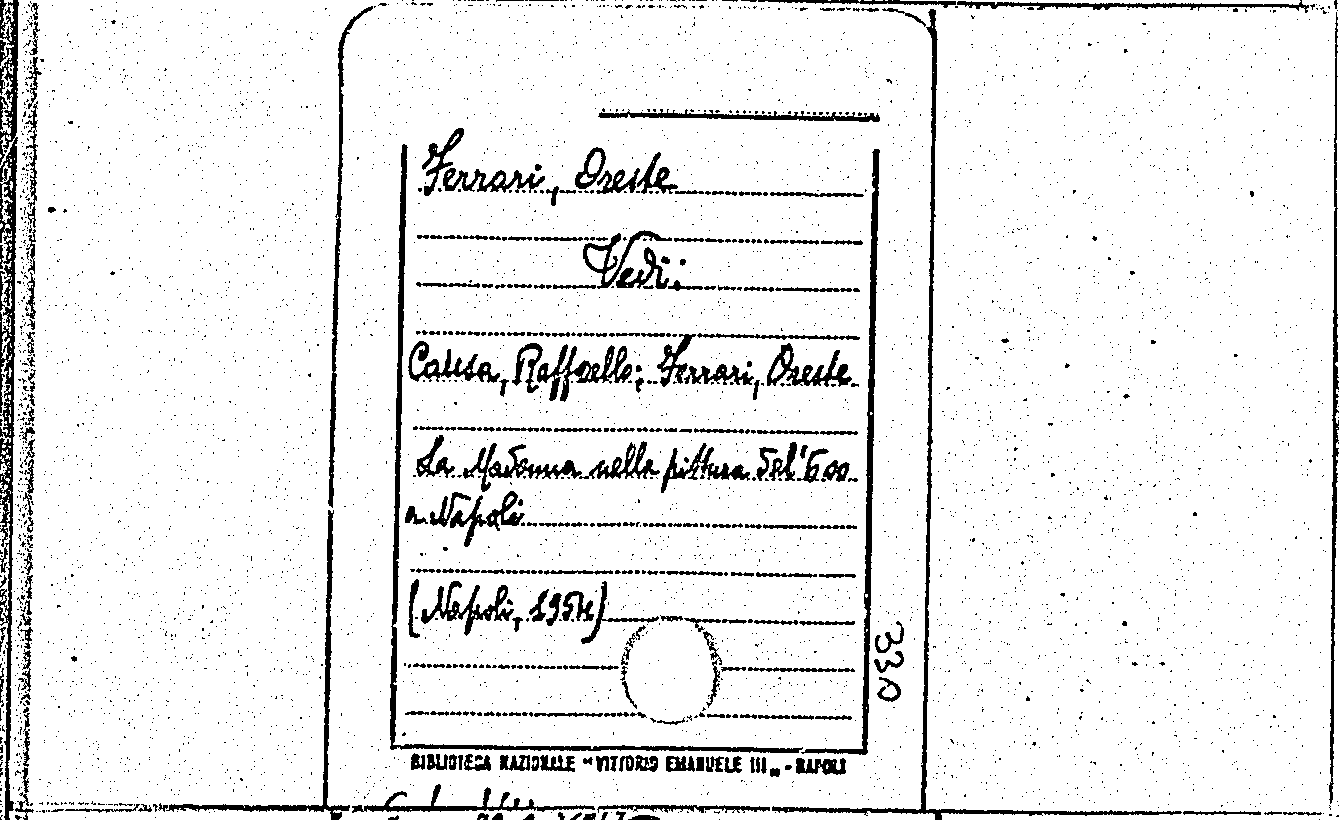 Ferrari, Oreste
Vedi:
Causa, Raffaello; Ferrari, Oreste
La Madonna nella pittura del '600
a Napoli
(Napoli, 1954)
330
BIBLIOTECA NAZIONALE "VITTORIO EMANUELE III„ - NAPOLI